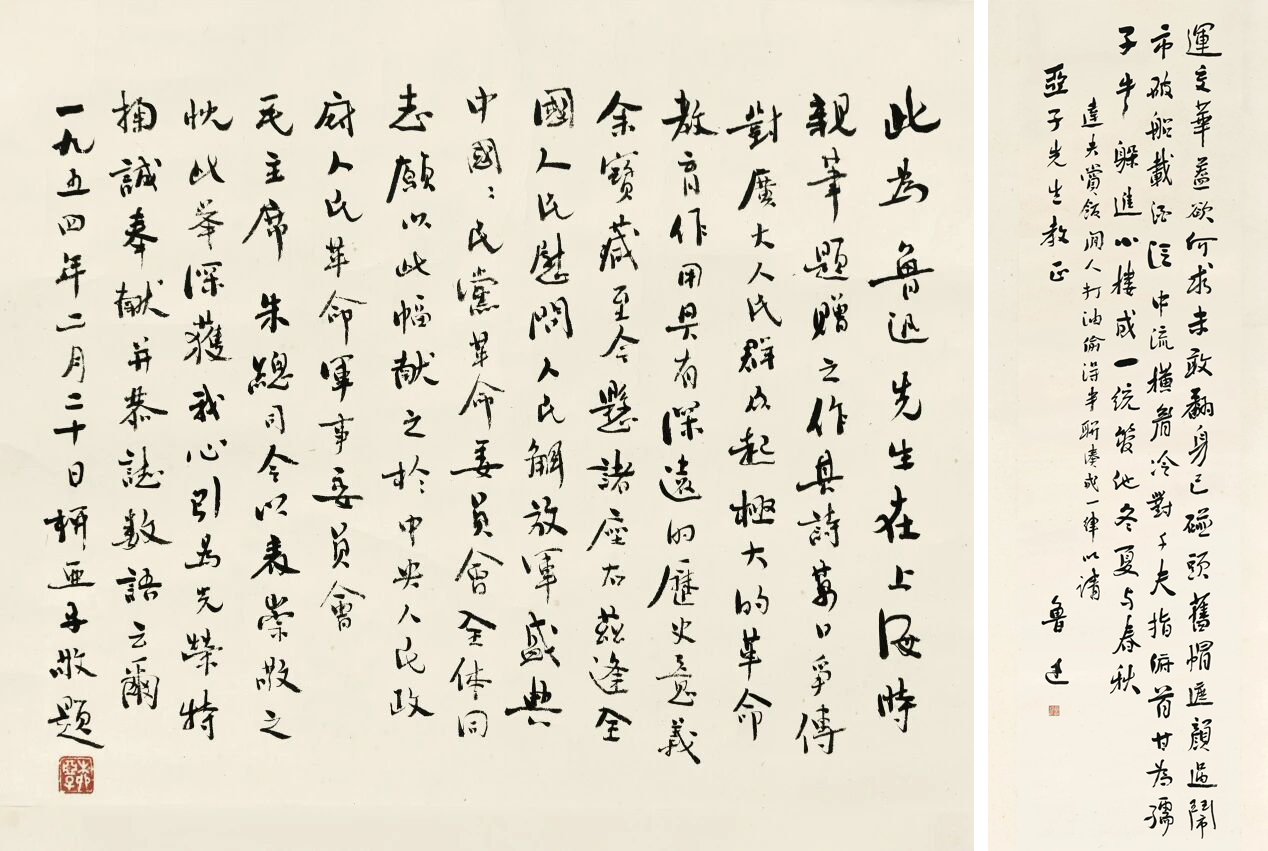 運交華蓋欲何求未敢翻身已碰頭舊帽遮顏過鬧
市破船載酒泛中流橫眉冷對千夫指俯首甘為孺
子牛躲進小樓成一統管他冬夏与春秋
達夫賞飯閒人打油偷得半聯湊成一律以請
亞子先生教正
魯迅
此為魯迅先生在上海時
親筆題贈之作其詩萬口爭傳
對廣大人民群众起極大的革命
教育作用具有深遠的歷史意義
余寶藏至今懸諸座右茲逢全
國人民慰問人民解放軍盛典
中國〻民黨革命委員會全体同
志願以此幅献之於中央人民政
府人民革命軍事委員會
毛主席朱總司令以表崇敬之
忱此举深獲我心引為光榮特
掬誠奉献并恭誌数語云爾
一九五四年二月二十日柳亞子敬題